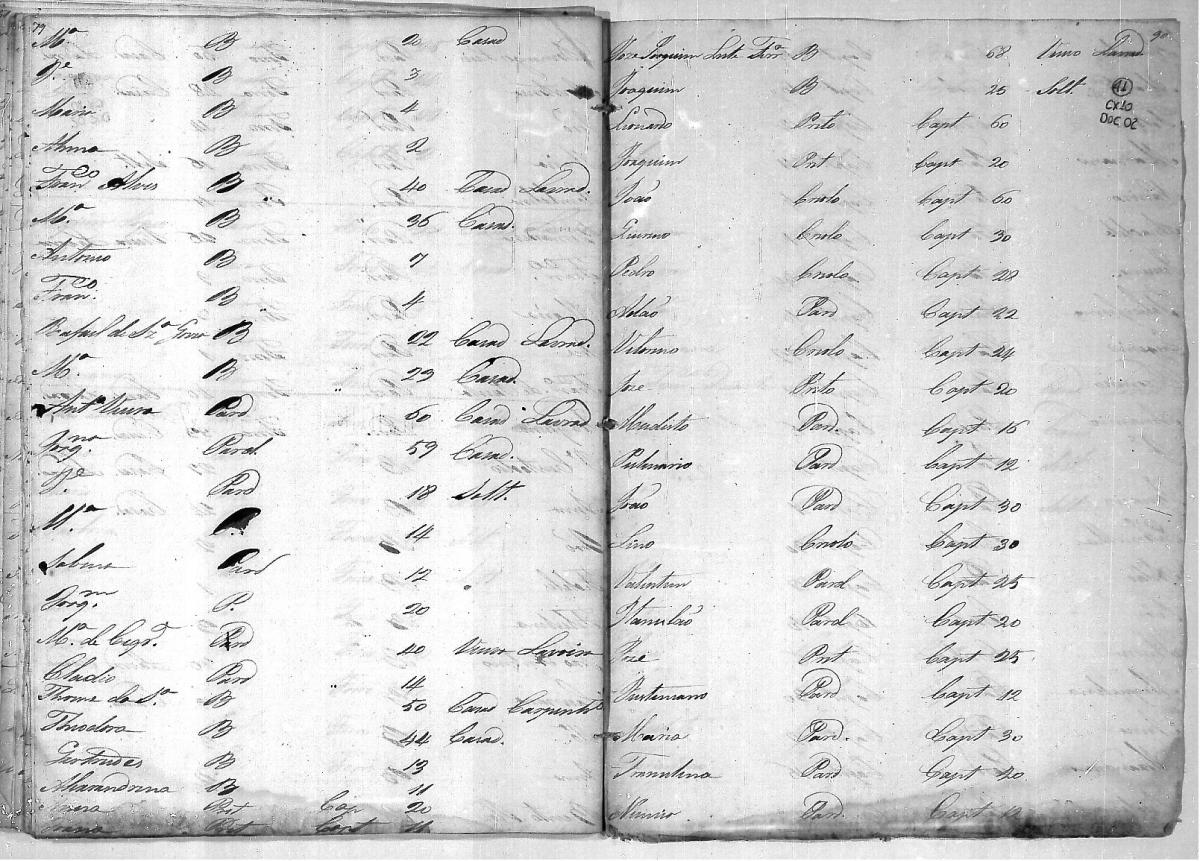 79
Mª B 20 Casad
Jᵉ B 3
Maria B 4
Anna B 2
Franᶜᵒ Alves B 40 Casad Lavrad.
Mª B 36 Casad.
Antonio B 7
Franᶜᵒ. B 4
Rafael de Szª B 22 Casad Lavrad.
Mª B 29 Casad.
Antº Vieira Pard 50 Casad Lavrad
Jorgⁿᵃ Pard. 59 Casad.
Jᵉ Pard 18 Solt.
Mª 14
Sabina Pard 12
Joaqᵐ. P. 20
Mª de Pard 40 Viuva Lavoira
Cladio Pard 14
Thome da Sª B 50 Casad Carpent
Theodora B 44 Casad.
Gertrudes B 13
Alexandrina B 11
Pret Cap 20
Pret Capt 11
90
Joze Joaquim Leite Ferrª B 68 Viuvo Lavrad
Joaquim B 25 Solt
11
CX10
DOC 02
Leonardo Preto Capt 60
Joaquim Pret Capt 20
João Criolo Capt 60
Criolo Capt 30
Pedro Criolo Capt 28
Adão Pard Capt 22
Vitorino Criolo Capt 24
Joze Preto Capt 20
Pard. Capt 16
Pard Capt 12
João Pard Capt 30
Lino Criolo Capt 30
Valentim Pard Capt 25
Pard Capt 20
Joze Pret Capt 25
Pard Capt 12
Maria Pard. Capt 30
Pard Capt 40
Pard. Capt 12